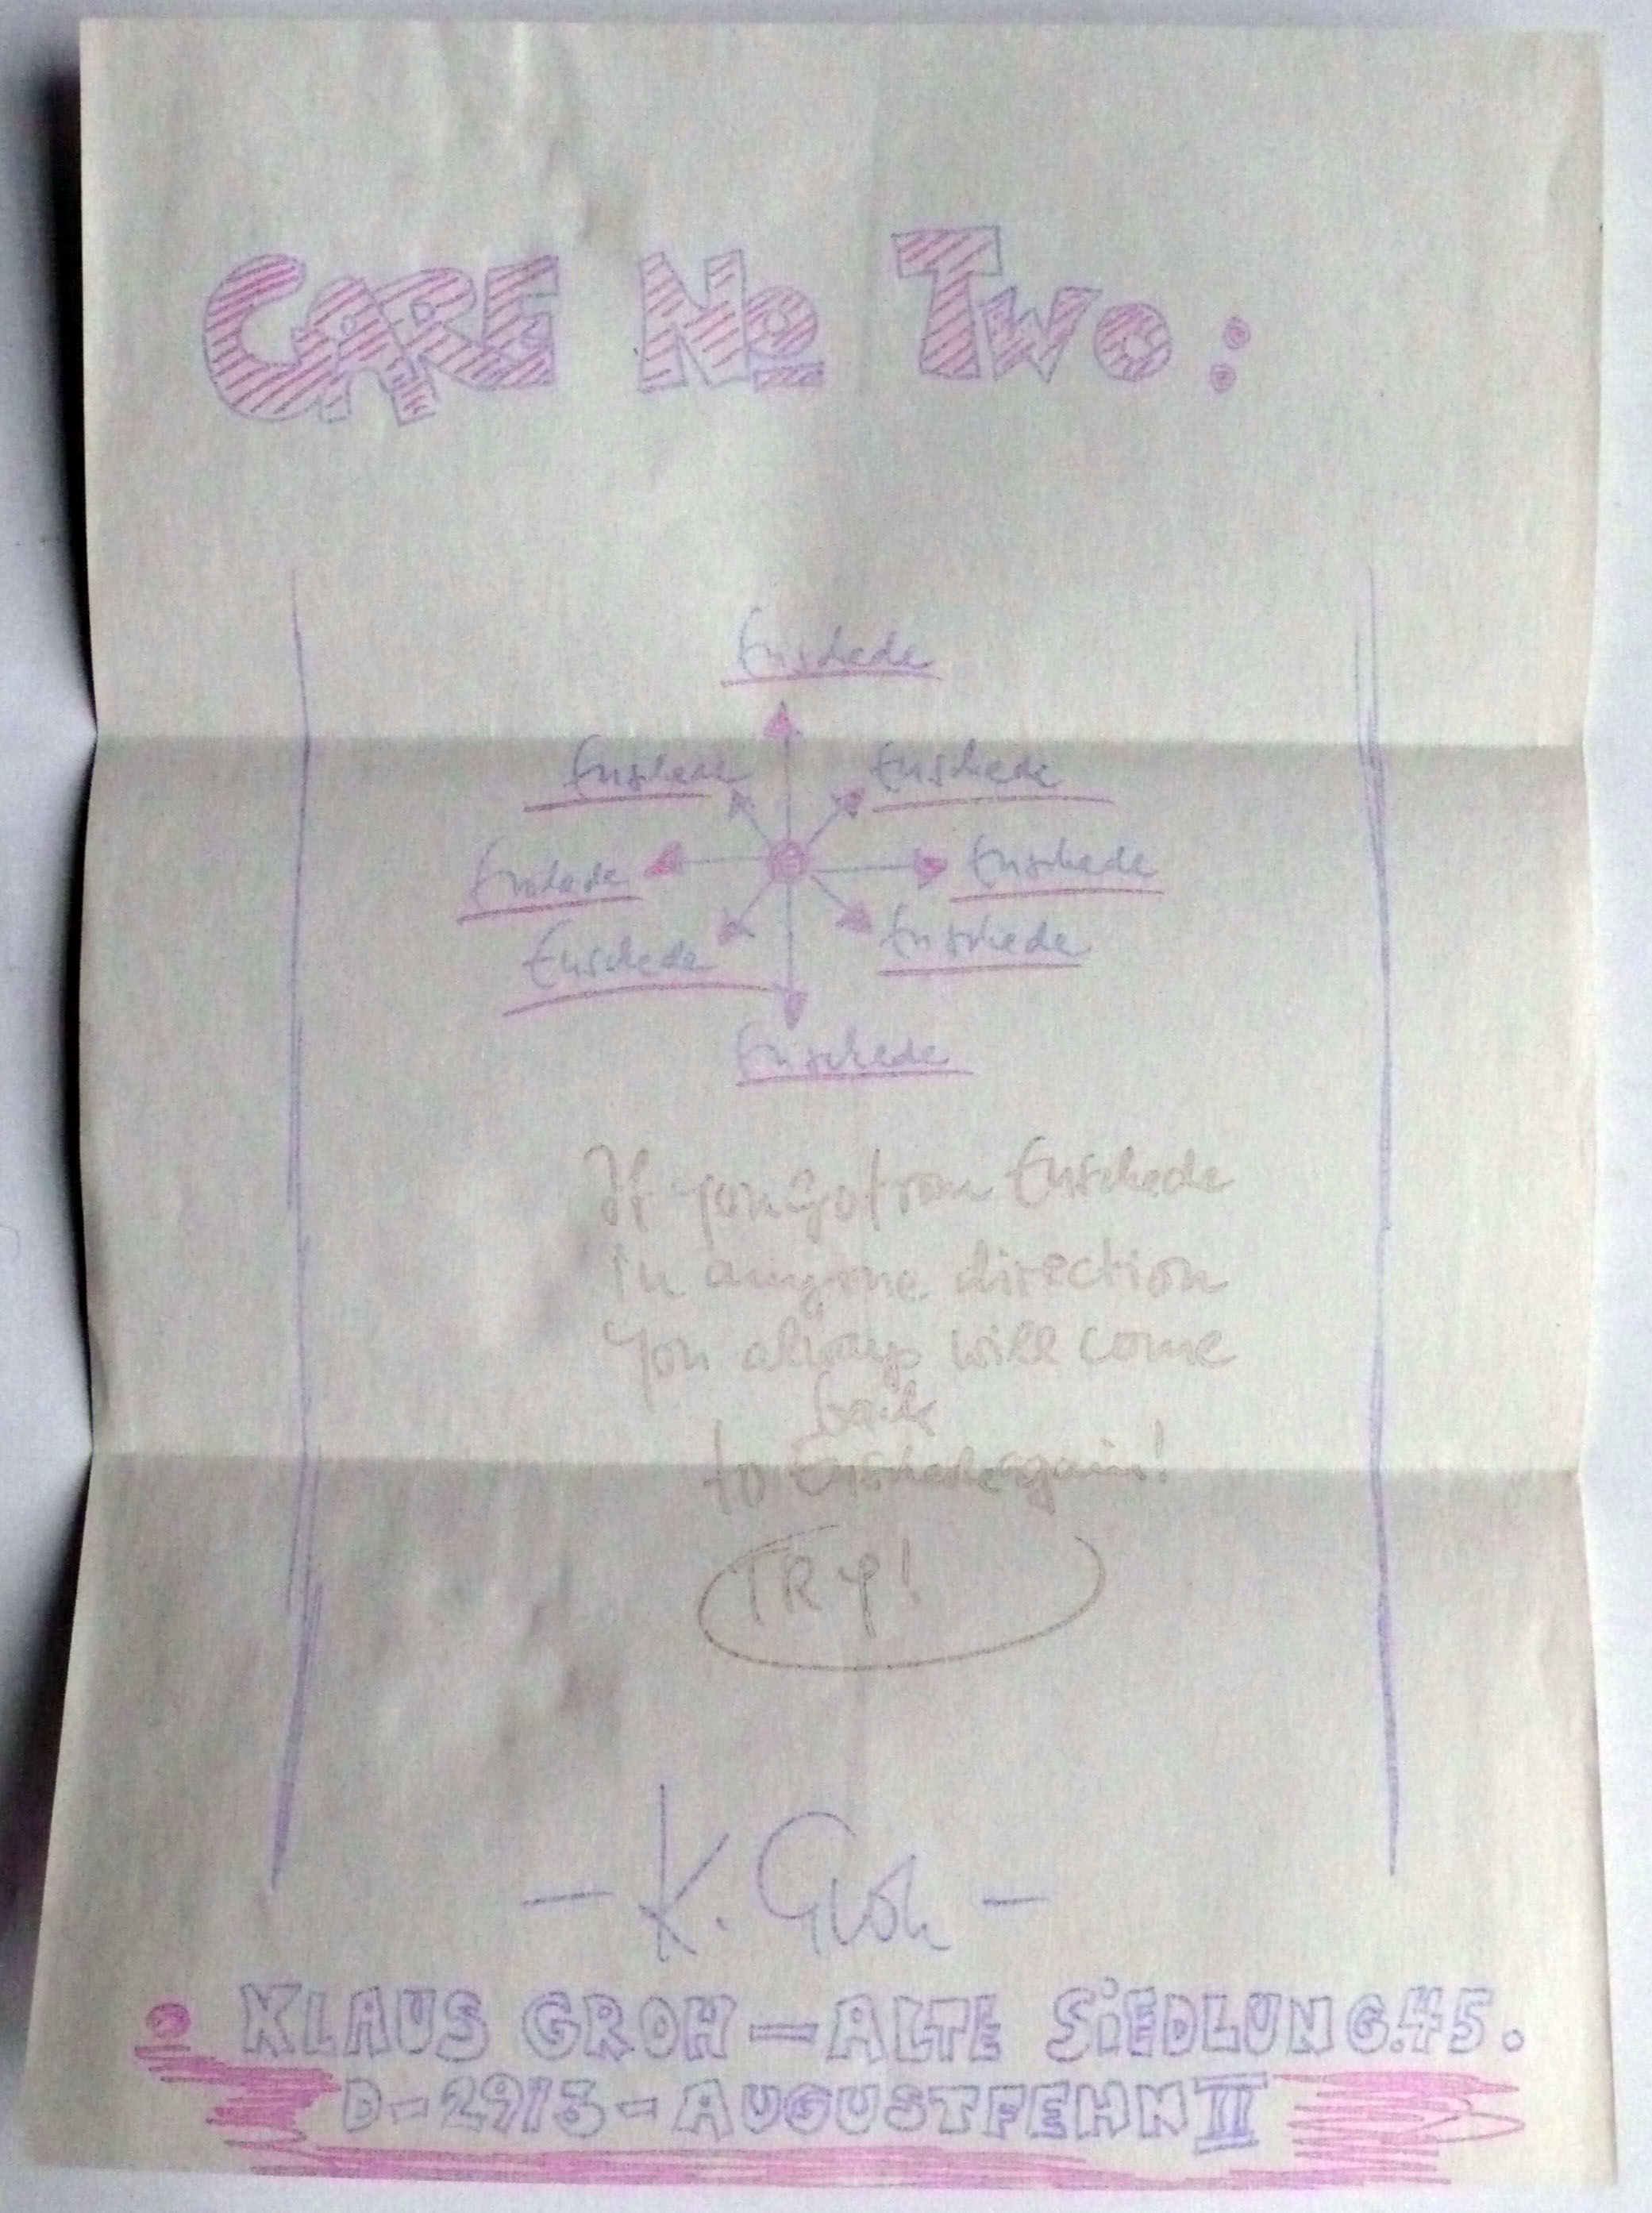 CARE No Two:
Enschede
Enschede Enschede
Enschede Enschede
Enschede Enschede
Enschede
If you go from Enschede
in anyone direction
you always will come
back
to Enschede again!
TRY!
- K. Groh -
KLAUS GROH - ALTE SiEDLUNG.45.
D-2913-AUGUSTFEHN II